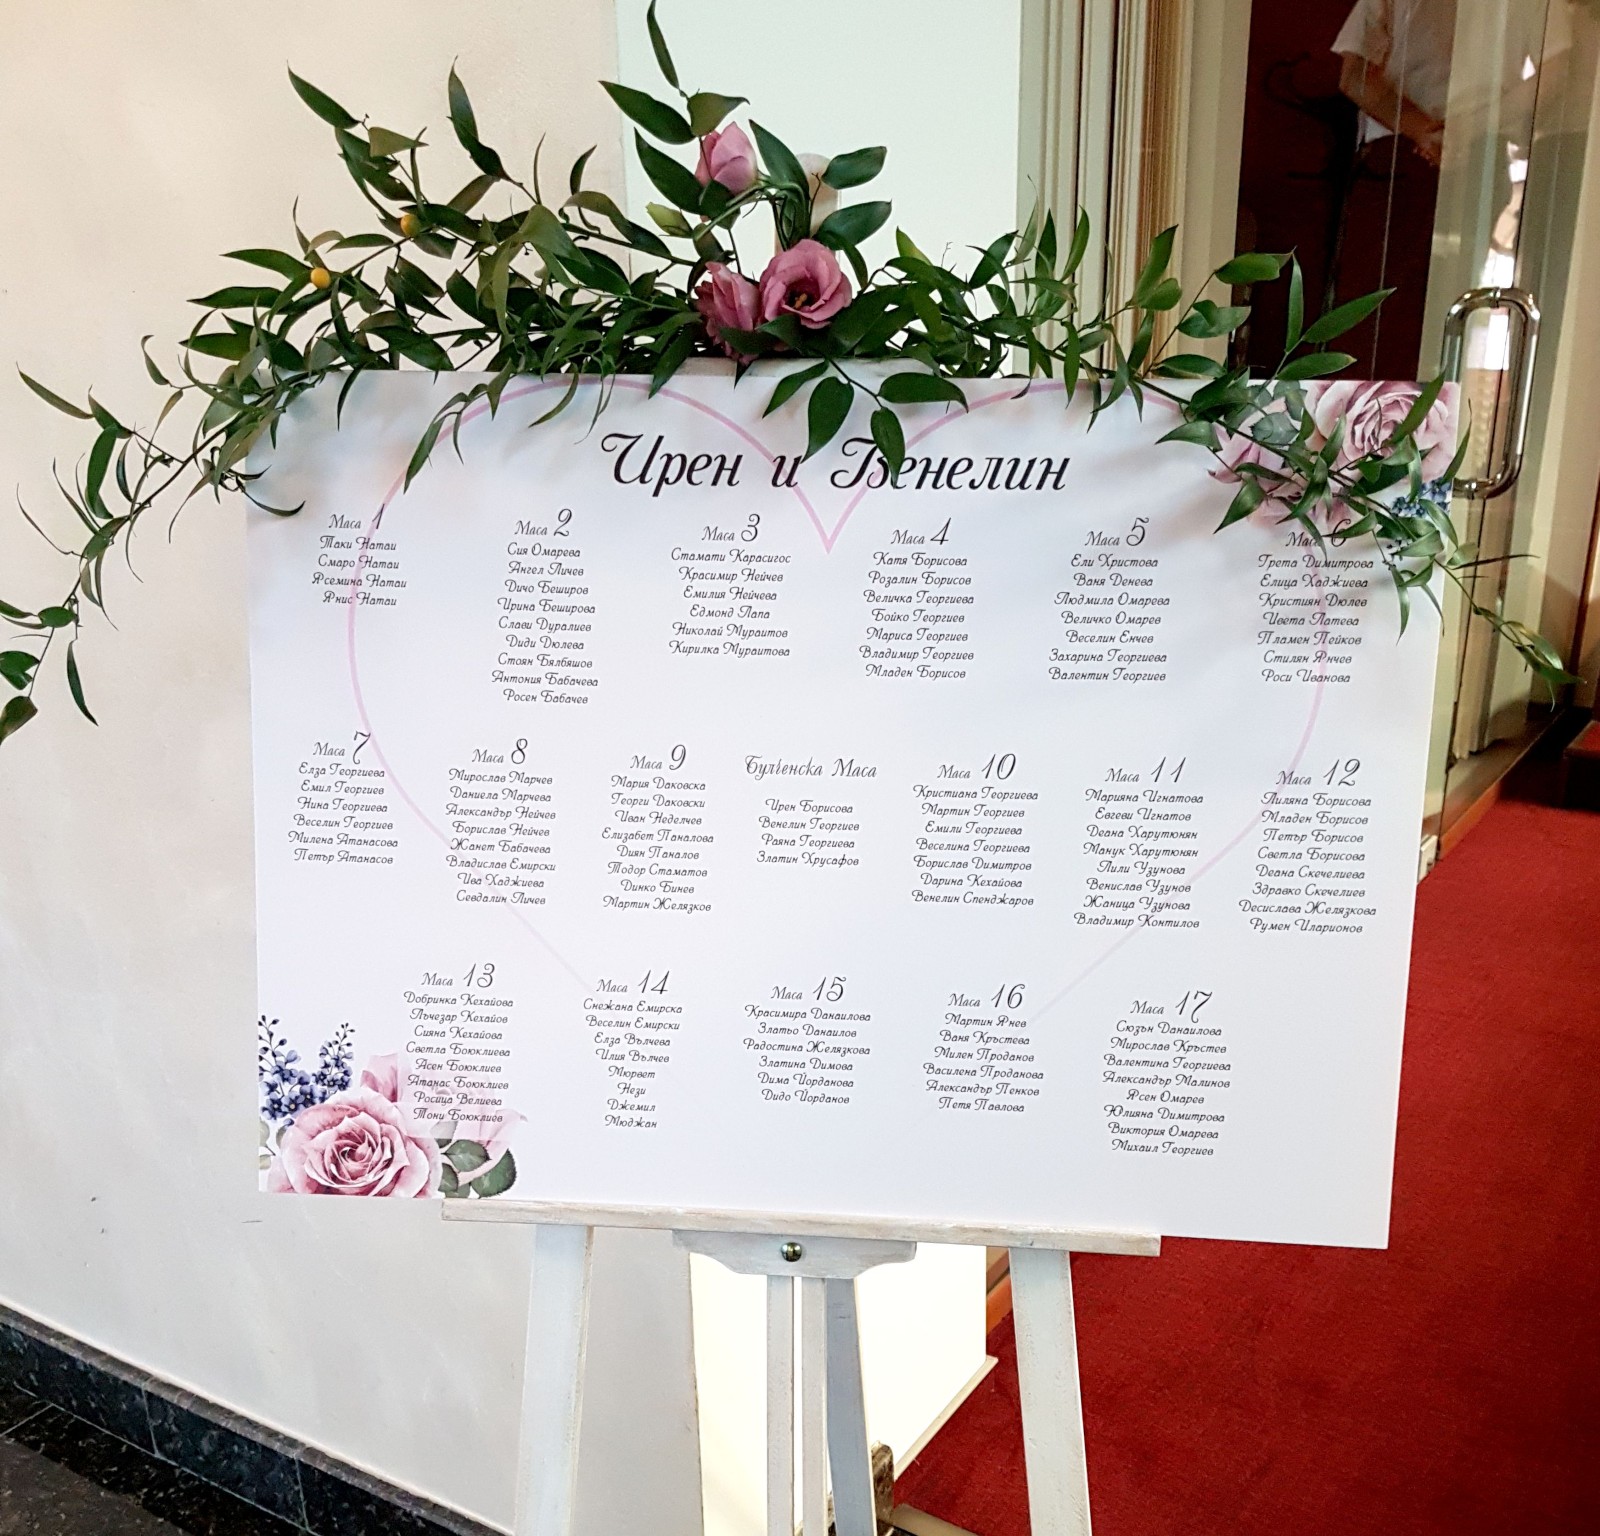 Ирен и Венелин
Маса 1
Таки Натаи
Смаро Натаи
Ясемина Натаи
Янис Натаи
Маса 2
Сия Омарева
Ангел Личев
Дичо Беширов
Ирина Беширова
Слави Дуралиев
Диди Дюлева
Стоян Бялбяшов
Антония Бабачева
Росен Бабачев
Маса 3
Стамати Карасигос
Красимир Нейчев
Емилия Нейчева
Едмонд Папа
Николай Мураитов
Кирилка Мураитова
Маса 4
Катя Борисова
Розалин Борисов
Величка Георгиева
Бойко Георгиев
Мариса Георгиев
Владимир Георгиев
Младен Борисов
Маса 5
Ели Христова
Ваня Денева
Людмила Омарева
Величко Омарев
Веселин Енчев
Захарина Георгиева
Валентин Георгиев
Маса 6
Грета Димитрова
Елица Хаджиева
Кристиян Дюлев
Цвета Латева
Пламен Пейков
Стилян Янчев
Роси Иванова
Маса 7
Елза Георгиева
Емил Георгиев
Нина Георгиева
Веселин Георгиев
Милена Атанасова
Петър Атанасов
Маса 8
Мирослав Марчев
Даниела Марчева
Александър Нейчев
Борислав Нейчев
Жанет Бабачева
Владислав Емирски
Ива Хаджиева
Севдалин Личев
Маса 9
Мария Даковска
Георги Даковски
Иван Неделчев
Елизабет Паналова
Диян Паналов
Тодор Стаматов
Динко Бинев
Мартин Желязков
Булченска Маса
Ирен Борисова
Венелин Георгиев
Раяна Георгиева
Златин Хрусафов
Маса 10
Кристиана Георгиева
Мартин Георгиев
Емили Георгиева
Веселина Георгиева
Борислав Димитров
Дарина Кехайова
Венелин Спенджаров
Маса 11
Марияна Игнатова
Евгеви Игнатов
Деана Харутюнян
Манук Харутюнян
Лили Узунова
Венислав Узунов
Жаница Узунова
Владимир Контилов
Маса 12
Лиляна Борисова
Младен Борисов
Петър Борисов
Светла Борисова
Деана Скечелиева
Здравко Скечелиев
Десислава Желязкова
Румен Иларионов
Маса 13
Добринка Кехайова
Лъчезар Кехайов
Сияна Кехайова
Светла Боюклиева
Асен Боюклиев
Атанас Боюклиев
Росица Велиева
Тони Боюклиев
Маса 14
Снежана Емирска
Веселин Емирски
Елза Вълчева
Илия Вълчев
Мюрвет
Нези
Джемил
Мюджан
Маса 15
Красимира Данаилова
Златьо Данаилов
Радостина Желязкова
Златина Димова
Дима Йорданова
Дидо Йорданов
Маса 16
Мартин Янев
Ваня Кръстева
Милен Проданов
Василена Проданова
Александър Пенков
Петя Павлова
Маса 17
Сюзън Данаилова
Мирослав Кръстев
Валентина Георгиева
Александър Малинов
Ясен Омарев
Юлияна Димитрова
Виктория Омарева
Михаил Георгиев